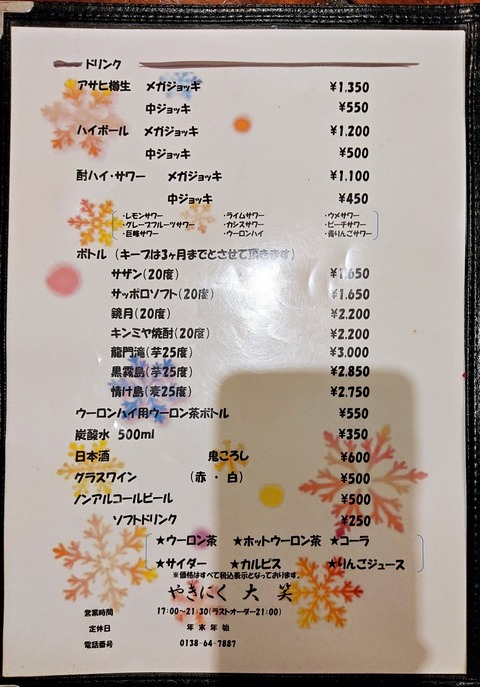 ドリンク
アサヒ樽生 メガジョッキ ¥1,350
中ジョッキ ¥550
ハイボール メガジョッキ ¥1,200
中ジョッキ ¥500
酎ハイ・サワー メガジョッキ ¥1,100
中ジョッキ ¥450
・レモンサワー ・ライムサワー ・ウメサワー
・グレープフルーツサワー ・カシスサワー ・ピーチサワー
・巨峰サワー ・ウーロンハイ ・青りんごサワー
ボトル (キープは3ヶ月までとさせて頂きます)
サザン(20度) ¥1,650
サッポロソフト(20度) ¥1,650
鏡月(20度) ¥2,200
キンミヤ焼酎(20度) ¥2,200
龍門滝(芋25度) ¥3,000
黒霧島(芋25度) ¥2,850
情け島(麦25度) ¥2,750
ウーロンハイ用ウーロン茶ボトル ¥550
炭酸水 500ml ¥350
日本酒 鬼ころし ¥600
グラスワイン (赤・白) ¥500
ノンアルコールビール ¥500
ソフトドリンク ¥250
★ウーロン茶 ★ホットウーロン茶 ★コーラ
★サイダー ★カルピス ★りんごジュース
※価格はすべて税込表示となっております。
やきにく 大笑
営業時間 17:00~21:30(ラストオーダー21:00)
定休日 年末年始
電話番号 0138-64-7887